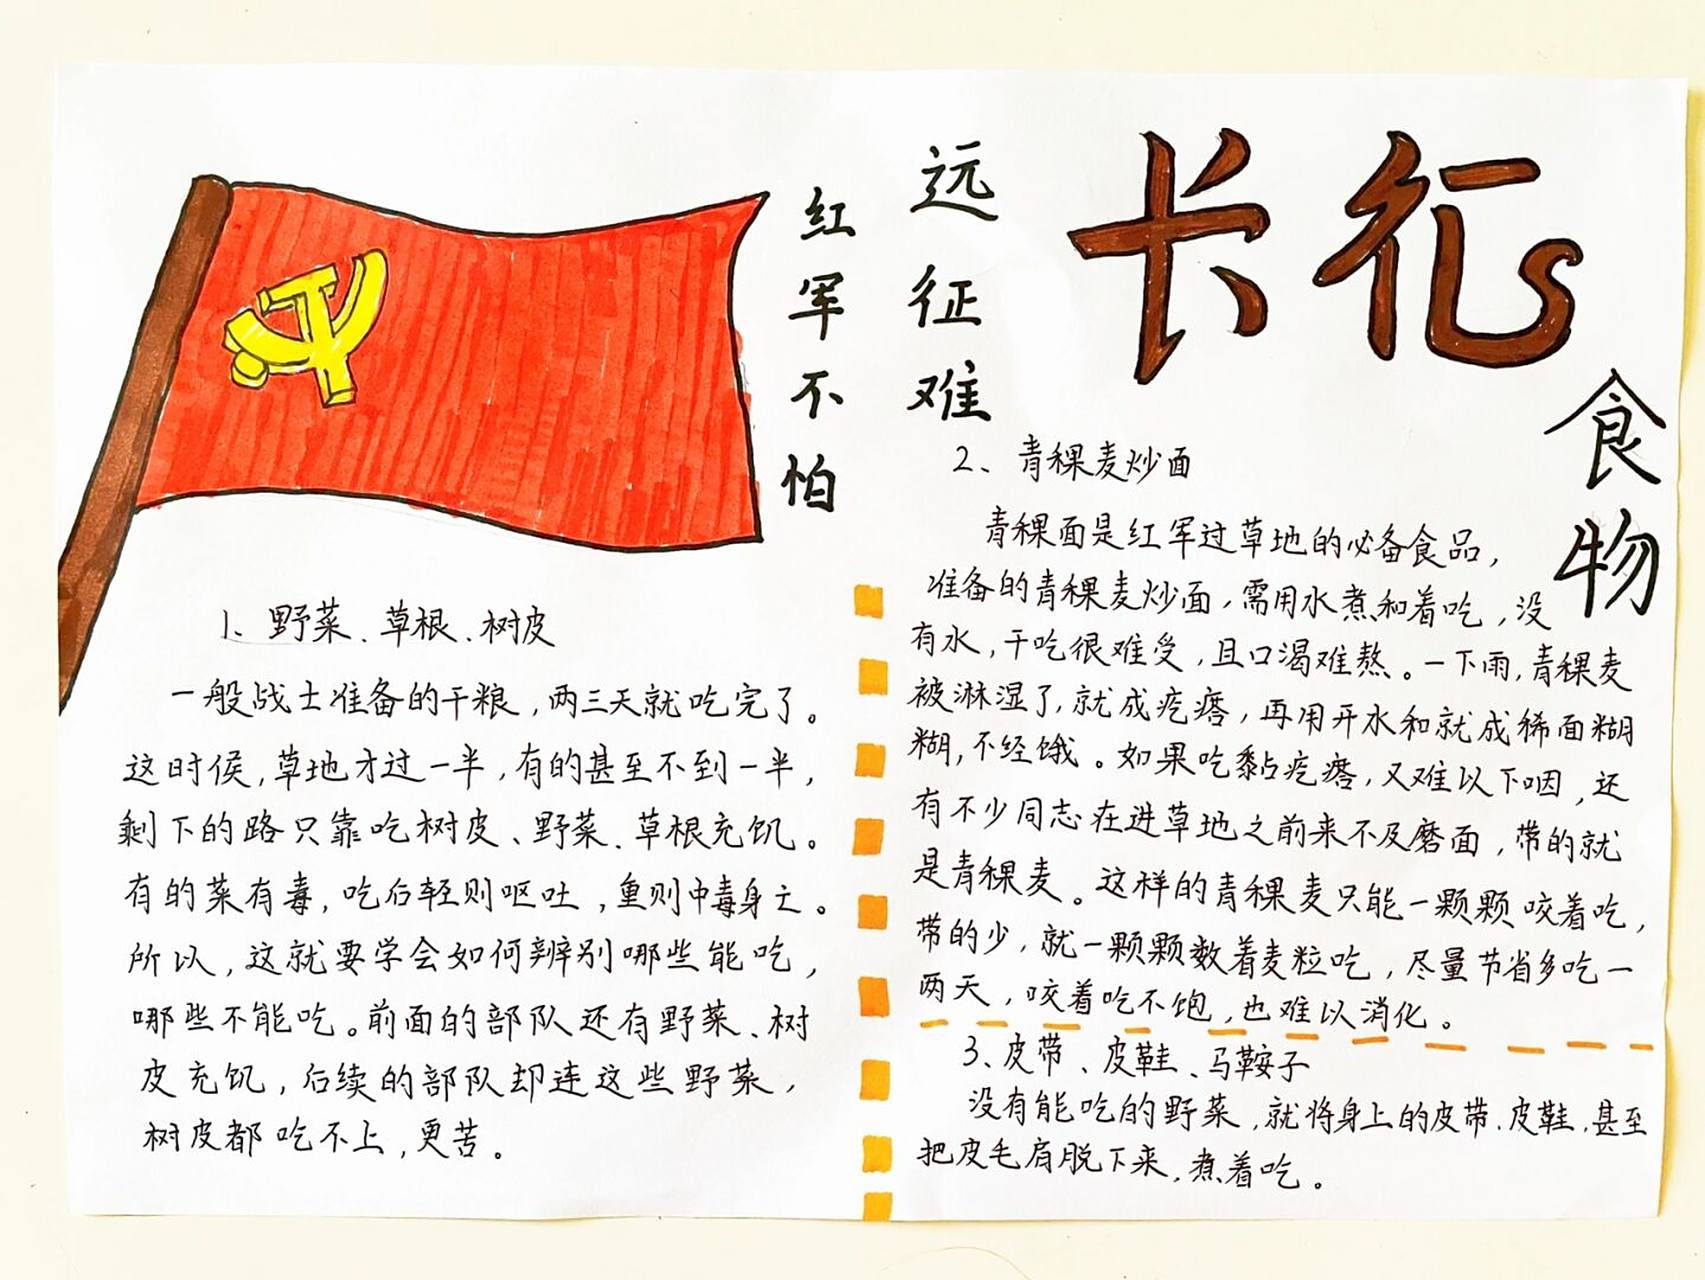 长征
食物
红军不怕
远征难
1、野菜、草根、树皮
一般战士准备的干粮，两三天就吃完了。
这时候，草地才过一半，有的甚至不到一半，
剩下的路只靠吃树皮、野菜、草根充饥。
有的菜有毒，吃后轻则呕吐，重则中毒身亡。
所以，这就要学会如何辨别哪些能吃，
哪些不能吃。前面的部队还有野菜、树
皮充饥，后续的部队却连这些野菜，
树皮都吃不上，更苦。
2、青稞麦炒面
青稞面是红军过草地的必备食品，
准备的青稞麦炒面，需用水煮和着吃，没
有水，干吃很难受，且口渴难熬。一下雨，青稞麦
被淋湿了，就成疙瘩，再用开水和就成稀面糊
糊，不经饿。如果吃黏疙瘩，又难以下咽，还
有不少同志在进草地之前来不及磨面，带的就
是青稞麦。这样的青稞麦只能一颗颗咬着吃，
带的少，就一颗颗数着麦粒吃，尽量节省多吃一
两天，咬着吃不饱，也难以消化。
3、皮带、皮鞋、马鞍子
没有能吃的野菜，就将身上的皮带、皮鞋，甚至
把皮毛肩脱下来，煮着吃。